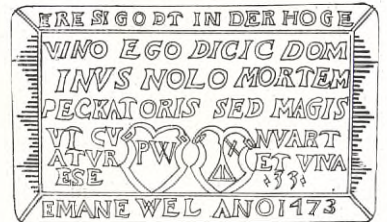 ERE SI GODT IN DER HOGE
VINO EGO DICIC DOM
INVS NOLO MORTEM
PECKATORIS SED MAGIS
VT CV PW NVART
ATVR ET VIVA
ESE 33
EMANE WEL ANO 1473